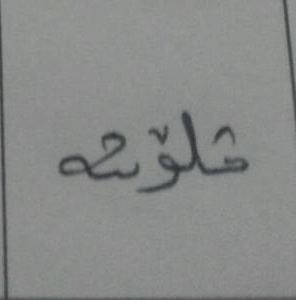 قلۆشە